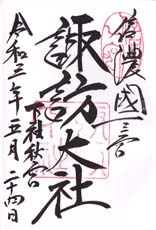 信濃國一之宮
諏訪大社
下社秋宮
令和三年五月二十四日